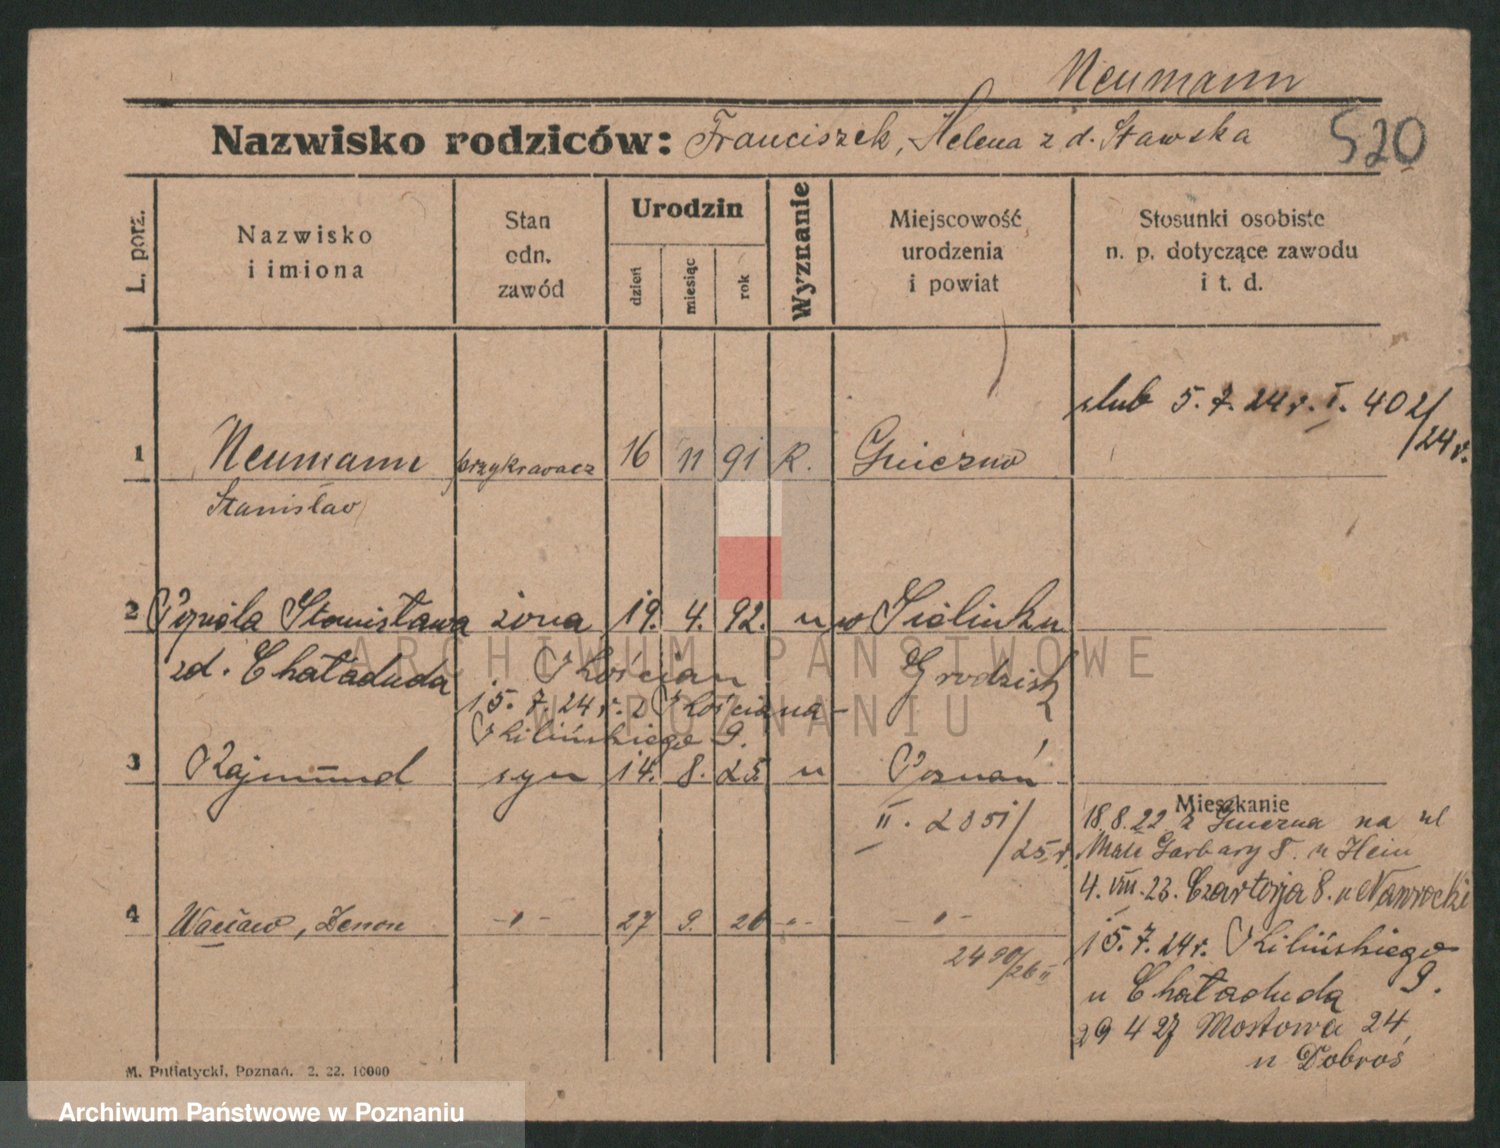 Neumann
Nazwisko rodziców: Franciszek, Helena z d. Stawska
520
L. porz.
Nazwisko i imiona
Stan odn. zawód
Urodzin
dzień
miesiąc
rok
Wyznanie
Miejscowość urodzenia i powiat
Stosunki osobiste n. p. dotyczące zawodu i t. d.
ślub 5. 7. 24 r. I. 402/24 r.
1 Neumann przykrawacz 16 11 91 R. Gniezno
Stanisław
2 Stanisława żona 19. 4. 92. " w
zd. Chataduda Kościan Grodzisk
15. 7. 24 r. z Kościana -
Kilińskiego 9.
3 Rajmund syn 14. 8. 25. " Poznań
II. 2051/25 r.
4 Wacław, Zenon -"- 27 9. 26 -"- "-
2490/26 II
Mieszkanie
18. 8. 22 z Gniezna na ul
Małe Garbary 8. u Hein
4. VIII. 23. Czartorja 8. u Nawrocki
15. 7. 24 r. Kilińskiego 9.
u Chataduda
29 4 27 Mostowa 24,
u Dobroś
M. Putiatycki, Poznań. 2. 22. 10000
ARCHIWUM PAŃSTWOWE
W POZNANIU
Archiwum Państwowe w Poznaniu